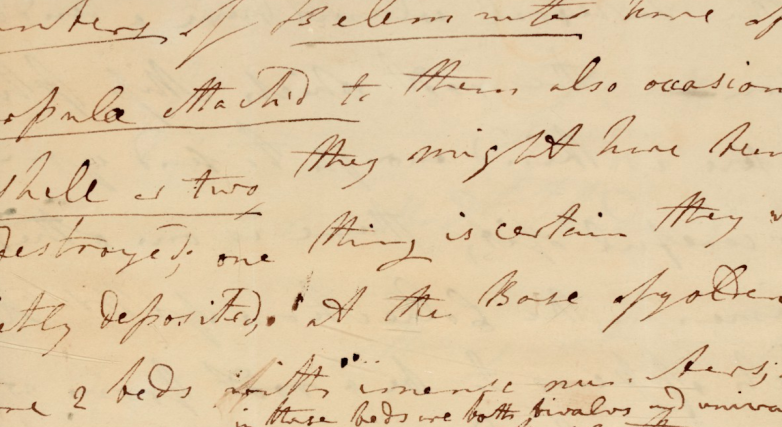 of Belemnites have
attachd to them also occasion
shell or two they might have been
destroyed; one thing is certain they
deposited, at the Base of golden
2 beds with imense num
in these beds are both bivalves and univa